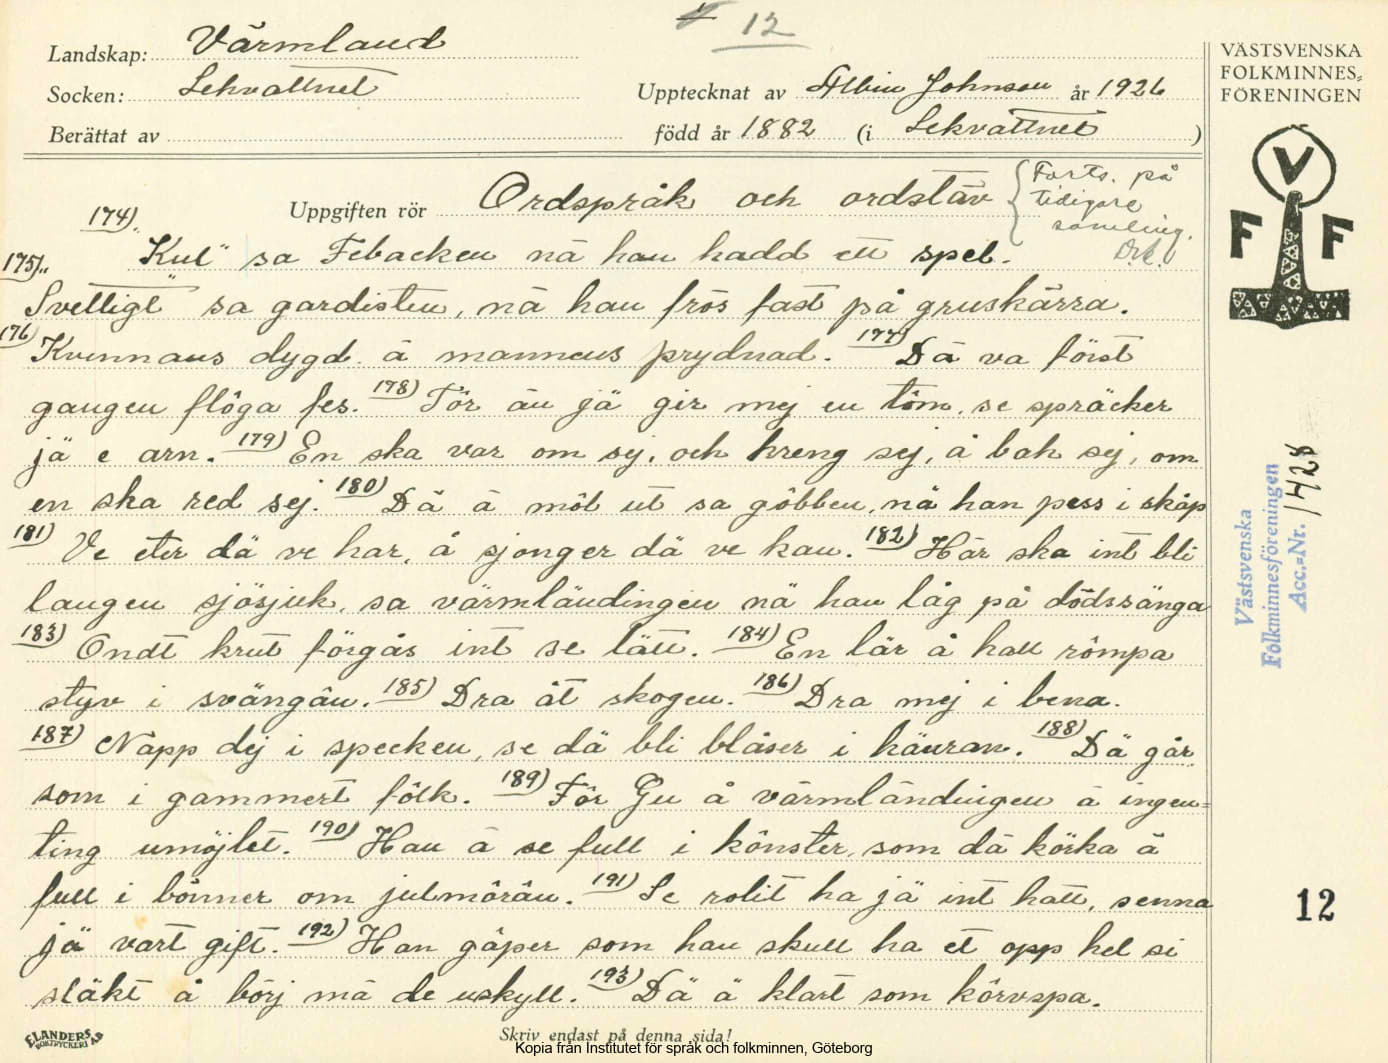 12
Landskap: Värmland
Socken: Lekvattnet
Upptecknat av Albin Johnson år 1926
Berättat av
född år 1882 (i Lekvattnet)
VÄSTSVENSKA
FOLKMINNES=
FÖRENINGEN
V
F F
Uppgiften rör Ordspråk och ordstäv
Forts. på
tidigare
samling.
174) "Kul" sa Febacken nä han hadd ett spel.
175) "Svettigt" sa gardisten, nä han frös fast på gruskärra.
176) Kvinnans dygd ä mannens prydnad. 177) Dä va först
gangen flôga fes. 178) För än jä gir mej en tôm, se spräcker
jä e arn. 179) En ska var om sej, och kreng sej, å bak sej, om
en ska red sej. 180) Dä ä môl ut sa gôbben, nä han pess i skåp
181) Ve eter dä ve har, å sjonger dä ve kan. 182) Här ska int bli
langen sjösjuk, sa värmländingen nä han låg på dödssänga
183) Ondt krut förgås int se lätt. 184) En lär å hall rômpa
styv i svängân. 185) Dra åt skogen. 186) Dra mej i bena.
187) Näpp dej i specken, se dä bli blåser i känran. 188) Dä går
som i gammert fôlk. 189) Fôr Gu å värmländingen ä ingen=
ting umöjlet. 190) Han ä se full i kônster, som dä körka ä
full i bönner om julmôrân. 191) Se rolit ha jä int hatt, senna
jä vart gift. 192) Han gåper som han skull ha et opp hel si
släkt å börj mä de uskyll. 193) Dä ä klart som kôrvspa.
Västsvenska
Folkminnesföreningen
Acc.=Nr. 1428
12
ELANDERS
BOKTRYCKERI AB
Skriv endast på denna sida!
Kopia från Institutet för språk och folkminnen, Göteborg